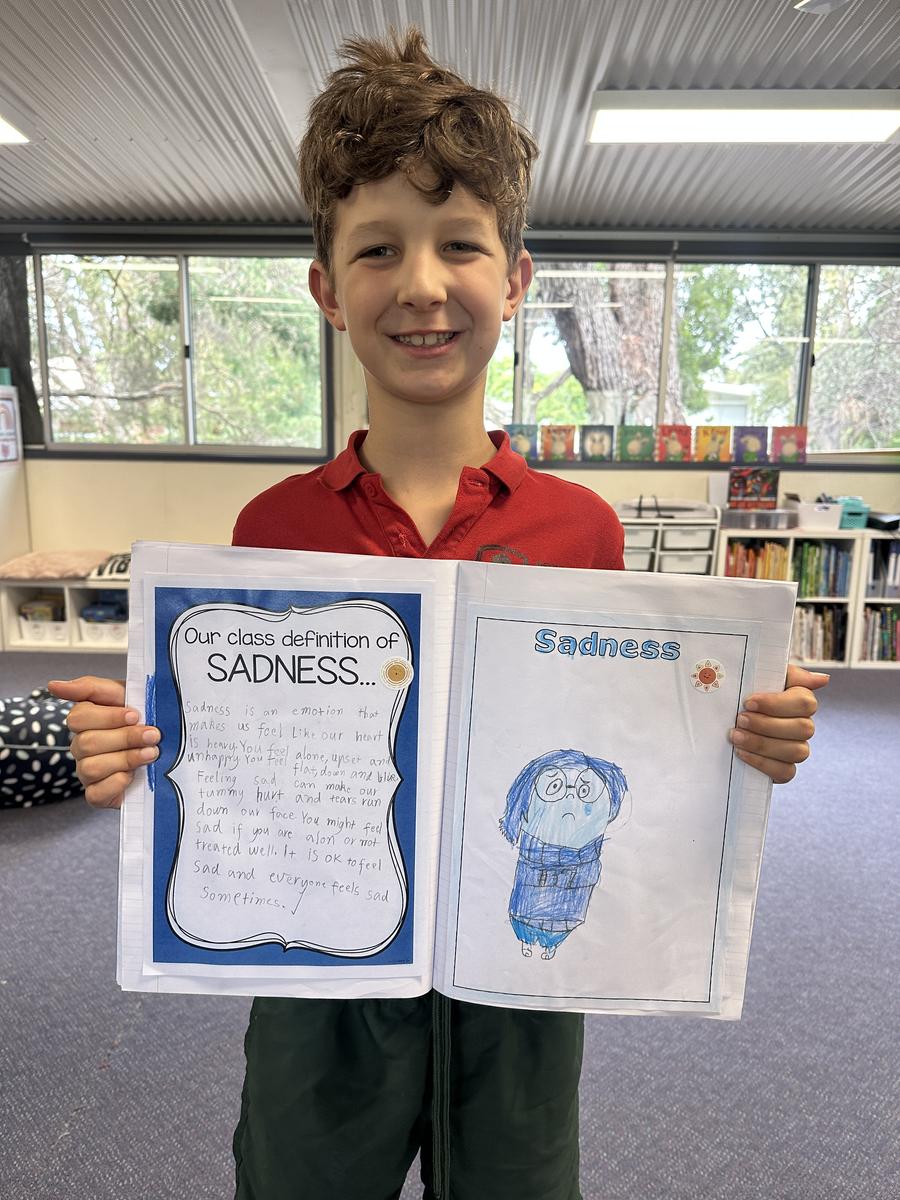 Our class definition of
SADNESS...
Sadness is an emotion that
makes us feel Like our heart
is heavy. You feel alone, upset and
unhappy. You feel flat, down and blue
Feeling sad can make our
tummy hurt and tears run
down our face. You might feel
sad if you are alon or not
treated well. It is ok to feel
sad and everyone feels sad
Sometimes.
Sadness